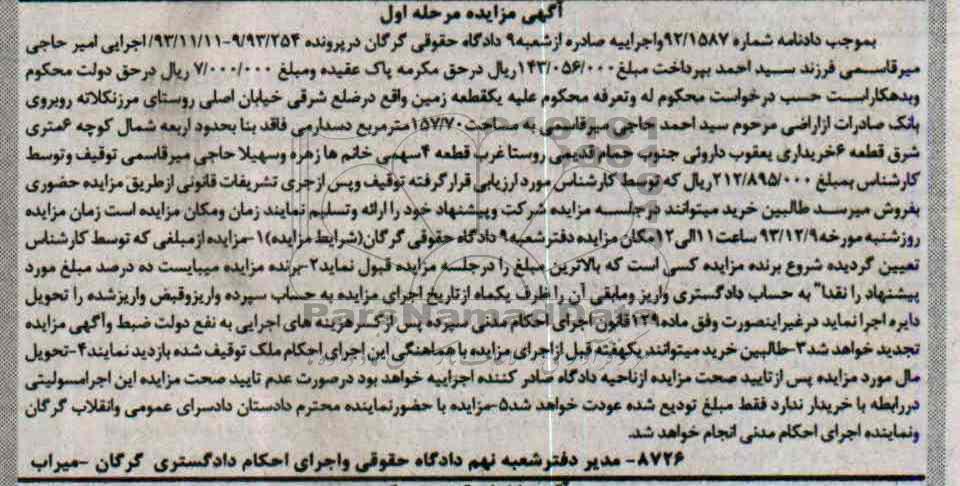 آگهی مزایده مرحله اول
بموجب دادنامه شماره ۹۲/۱۵۸۷واجراییه صادره ازشعبه۹ دادگاه حقوقی گرگان درپرونده ۹/۹۳/۲۵۴-۹۳/۱۱/۱۱/ اجرایی امیر حاجی
میرقاسمی فرزند سید احمد بپرداخت مبلغ۱۴۳/۰۵۶/۰۰۰ریال درحق مکرمه پاک عقیده ومبلغ ۷/۰۰۰/۰۰۰ ریال درحق دولت محکوم
وبدهکاراست حسب درخواست محکوم له وتعرفه محکوم علیه یکقطعه زمین واقع درضلع شرقی خیابان اصلی روستای مرزنکلاته روبروی
بانک صادرات ازاراضی مرحوم سید احمد حاجی میرقاسمی به مساحت۱۵۷/۷۰مترمربع دسدارمی فاقد بنا بحدود اربعه شمال کوچه ۶متری
شرق قطعه ۶خریداری یعقوب داروئی جنوب حمام قدیمی روستا غرب قطعه ۴سهمی خانم ها زهره وسهیلا حاجی میرقاسمی توقیف وتوسط
کارشناس بمبلغ ۲۱۲/۸۹۵/۰۰۰ریال که توسط کارشناس مورد ارزیابی قرارگرفته توقیف وپس ازجری تشریفات قانونی ازطریق مزایده حضوری
بفروش میرسد طالبین خرید میتوانند درجلسه مزایده شرکت وپیشنهاد خود را ارائه وتسلیم نمایند زمان ومکان مزایده است زمان مزایده
روزشنبه مورخه۹۳/۱۲/۹ ساعت۱۱الی۱۲مکان مزایده دفترشعبه۹ دادگاه حقوقی گرگان(شرایط مزایده)۱-مزایده ازمبلغی که توسط کارشناس
تعیین گردیده شروع برنده مزایده کسی است که بالاترین مبلغ را درجلسه مزایده قبول نماید۲-برنده مزایده میبایست ده درصد مبلغ مورد
پیشنهاد را نقدا" به حساب دادگستری واریز ومابقی آن را ظرف یکماه ازتاریخ اجرای مزایده به حساب سپرده واریزوقبض واریزشده را تحویل
دایره اجرا نماید درغیراینصورت وفق ماده۱۲۹قانون اجرای احکام مدنی سپرده پس ازکسرهزینه های اجرایی به نفع دولت ضبط وآگهی مزایده
تجدید خواهد شد۳-طالبین خرید میتوانند یکهفته قبل ازاجرای مزایده با هماهنگی این اجرای احکام ملک توقیف شده بازدید نمایند۴-تحویل
مال مورد مزایده پس ازتایید صحت مزایده ازناحیه دادگاه صادر کننده اجراییه خواهد بود درصورت عدم تایید صحت مزایده این اجرامسولیتی
دررابطه با خریدار ندارد فقط مبلغ تودیع شده عودت خواهد شد۵-مزایده با حضورنماینده محترم دادستان دادسرای عمومی وانقلاب گرگان
ونماینده اجرای احکام مدنی انجام خواهد شد.
۸۷۲۶- مدیر دفترشعبه نهم دادگاه حقوقی واجرای احکام دادگستری گرگان -میراب
ParsNamadData